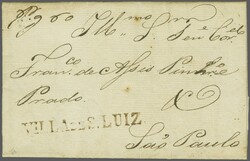 Pg 60 Illmo Snr Ten Corel
Franco de Assis Pinhro
Prado. &
VILLA DE S. LUIZ.
São Paulo